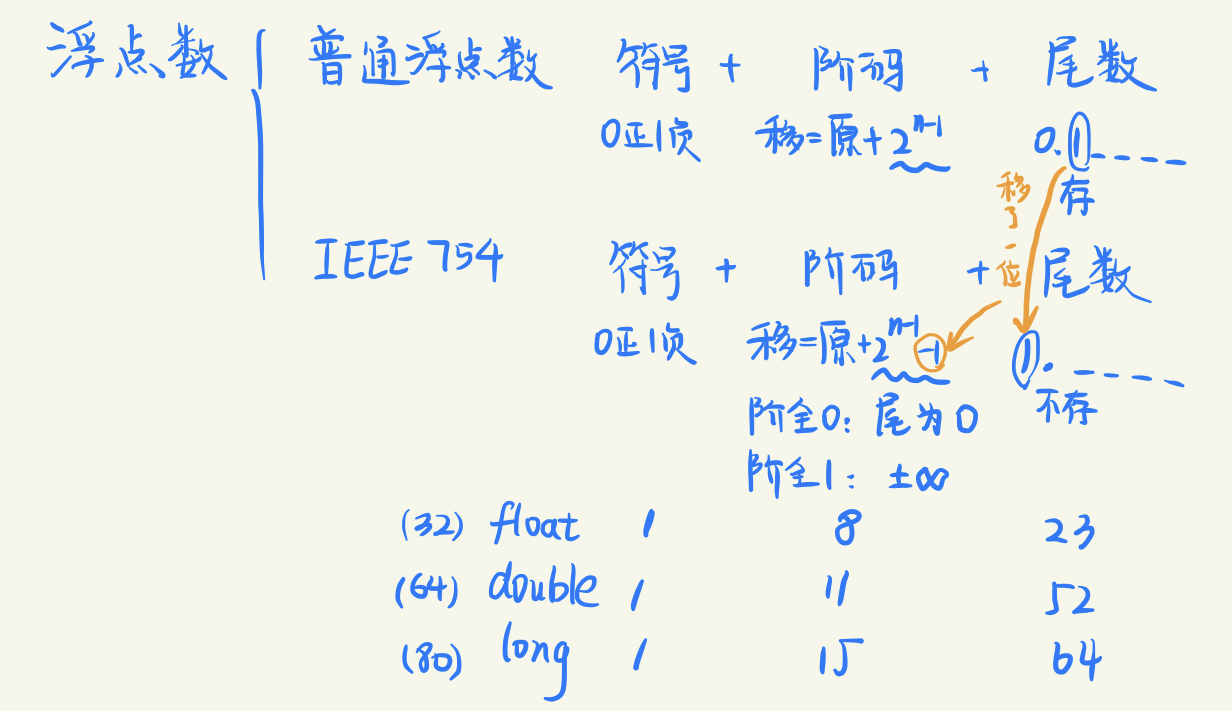 浮点数 { 普通浮点数 符号 + 阶码 + 尾数
0正1负 移=原+2^{n-1} 0.1----
移了一位 存
IEEE 754 符号 + 阶码 + 尾数
0正1负 移=原+2^{n-1}-1 1.----
阶全0: 尾为0 不存
阶全1: ±∞
(32) float 1 8 23
(64) double 1 11 52
(80) long 1 15 64